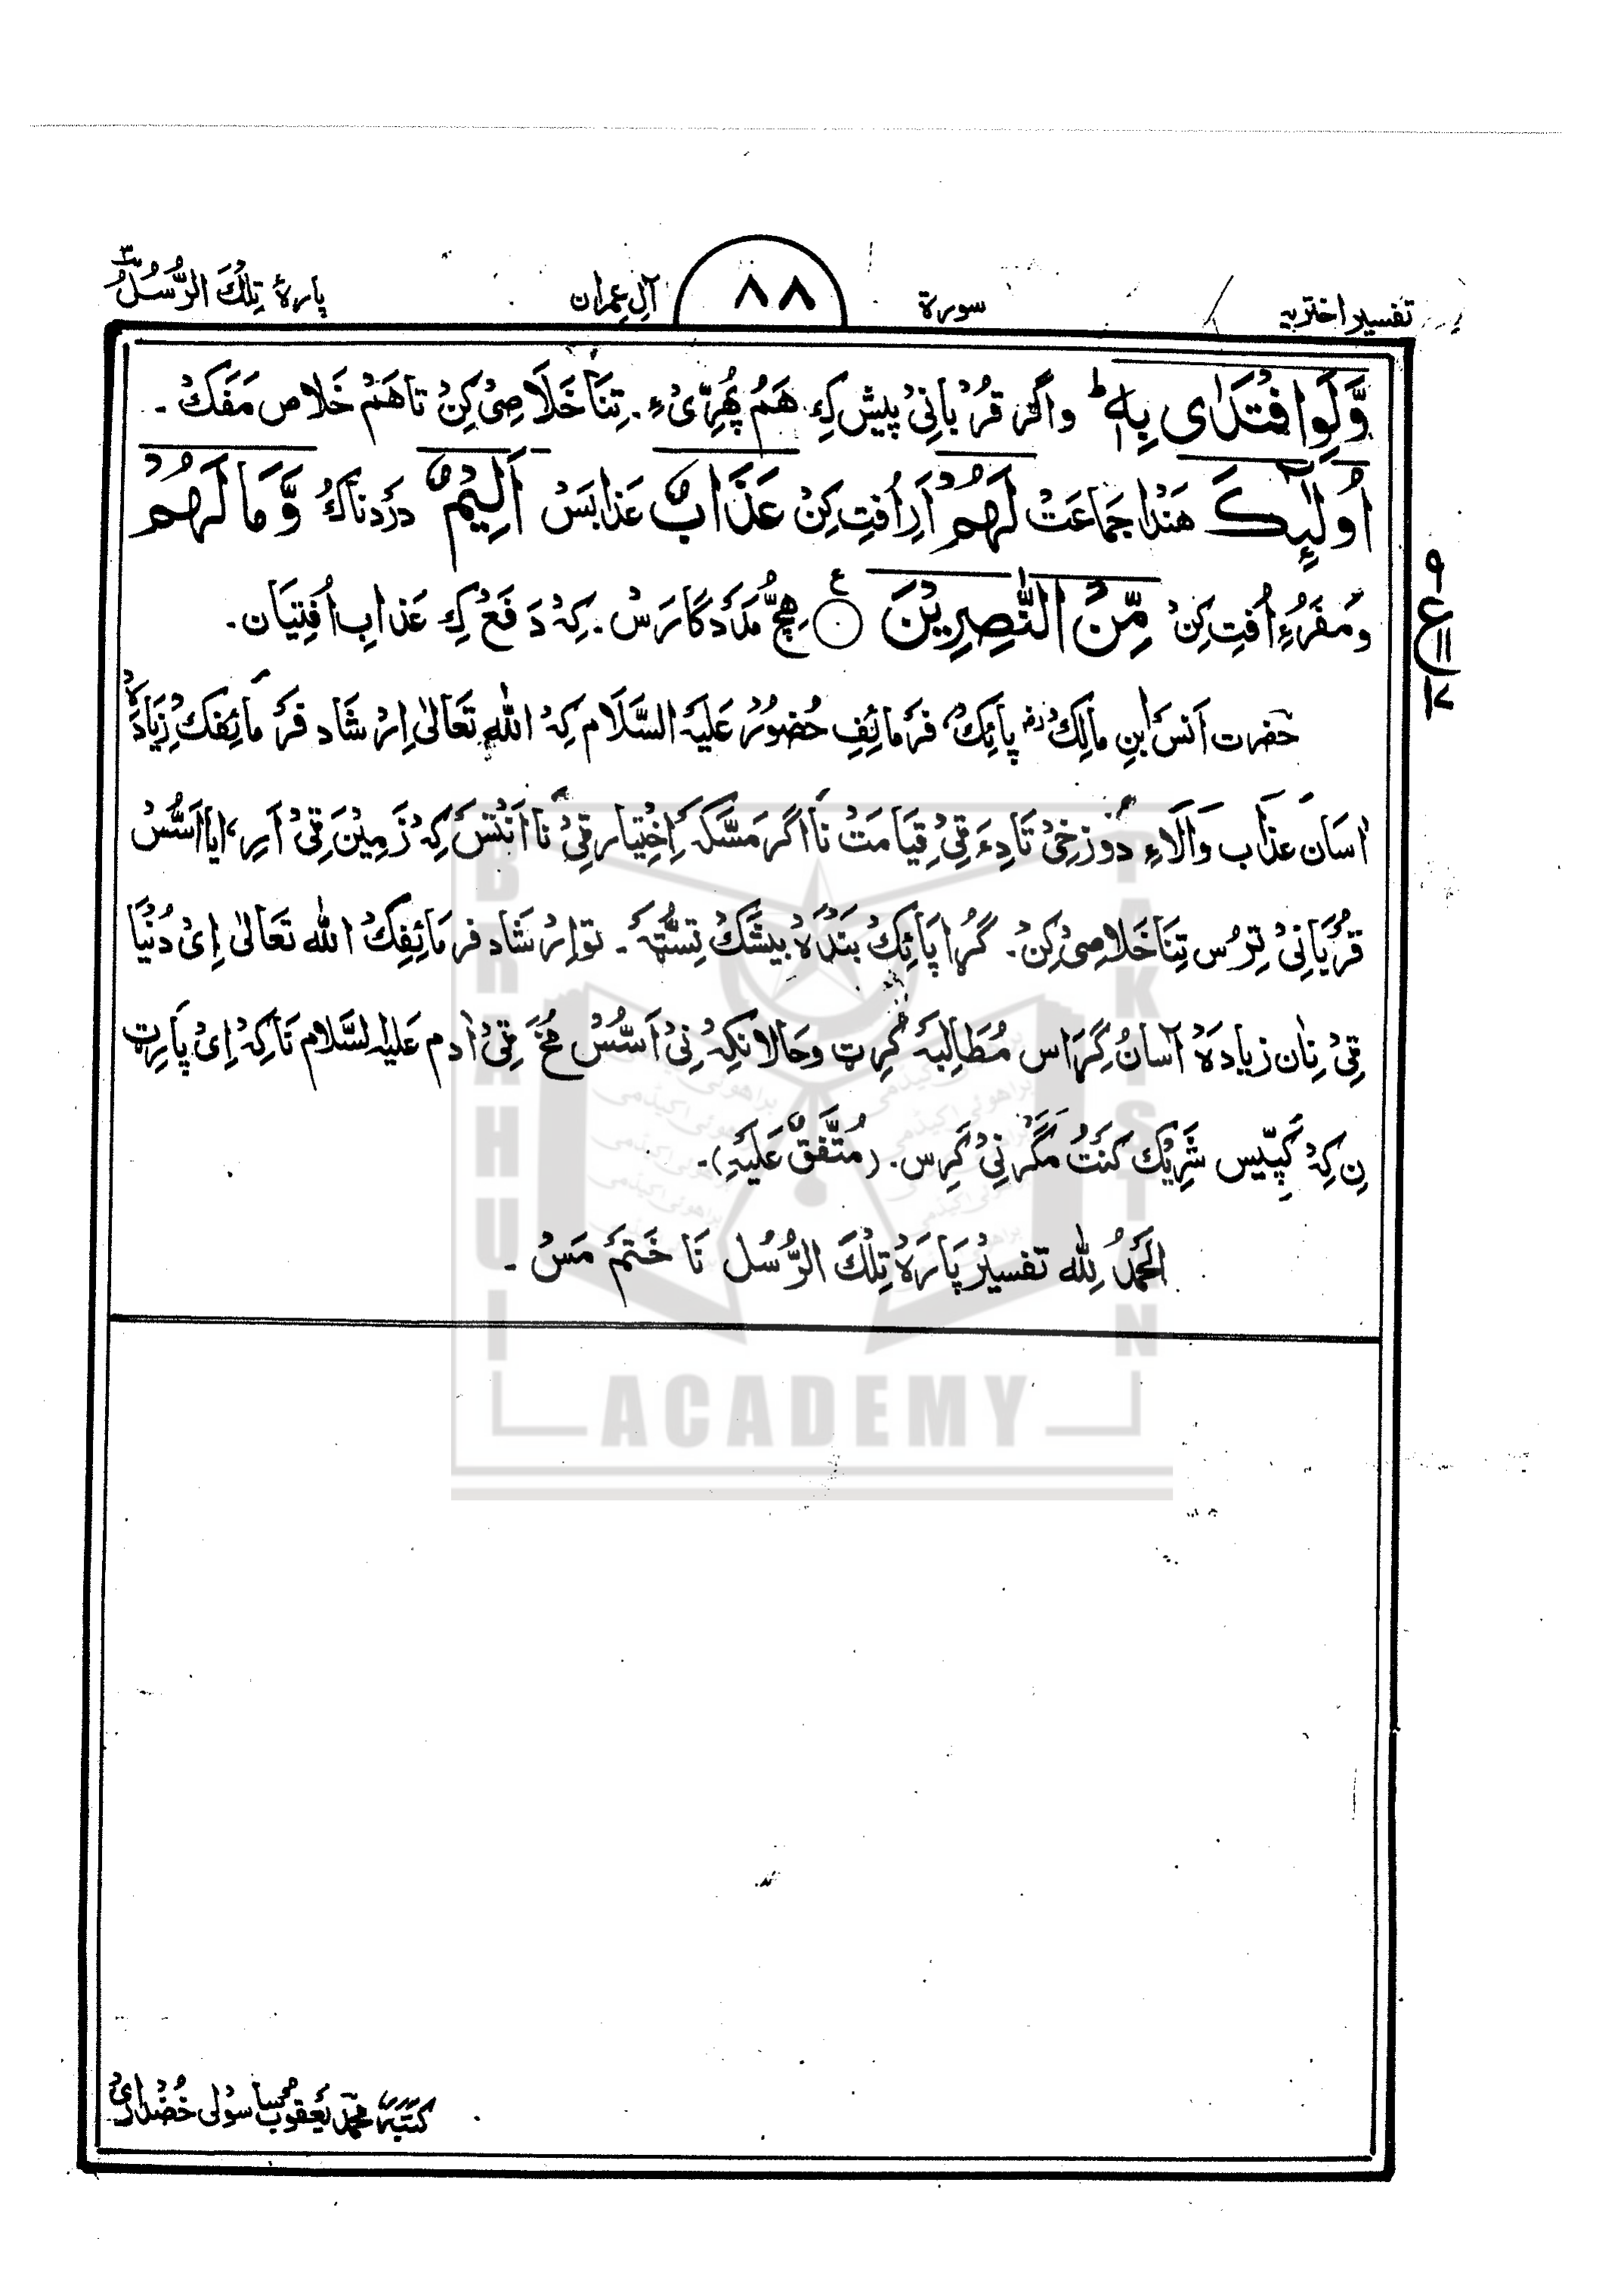 تفسیر اختریہ سورۃ ۸۸ آلِ عِمران پارۂ تِلْكَ الرُّسُلُ ۳
وَّلَوِ افْتَدٰى بِهٖ ؕ واگر قُرْبانِیْ پیش کِے هَمُ پُهرِّیْ ءِ۔ تِنَا خَلَاصِیْ کِنْ تاهَمْ خَلاص مَفَکْ۔
اُولٰٓئِكَ هَنْدا جَمَاعَتْ لَهُمْ اَرِ اُفتِ کِنْ عَذَابٌ عَذابَسْ اَلِيْمٌ دَرْدناکْ وَّمَا لَهُمْ
وَمَفَرءِ اُفتِ کِنْ مِّنْ النّٰصِرِيْنَ ○ ع هِچّ مَدَدگارَسْ۔ کِہ دَفَعْ کِے عَذابِ اُفْتِیَان۔
۹ ع ۱۱ ۷
حَضرت اَنَس ابنِ مالِکْ رض پائِکْ، فَرمائِفِ حُضُوْرْ عَلَیہِ السَّلَام کِہْ اللّٰہ تَعَالیٰ اِرْشَاد فَرمائِفکْ زِیَادَہْ
اٰسَان عَذَاب وَالَاءِ دُوْزخِیْ تَادِءَ قِیْ قِیَامَتْ نَا اگر مَسَّکہ اِخْتِیار قِیْ نَا اَنْتَسَ کِہْ زَمِیْنَ قِیْ اَرِ، اٰیا اَسُّسْ
قُرْبَانِیْ تِرُس تِنَا خَلاصِیْ کِنْ۔ گُڑا پَائِکْ بَنْدَہْ بیشَکْ تِسُّٹہ۔ تو اِرْشَاد فرمَائِفِکْ اللّٰہ تَعَالیٰ اِیْ دُنْیَا
قِیْ نِان زیادَہْ آسَانْ گِرَاس مُطَالِبَہ کرِٹ وحَالانکِہْ نِیْ اَسُّسْ مُخَ قِیْ اٰدم عَلَیہِ السَّلام نَا کِہْ اِیْ پَارِٹ
نِ کِہْ کَپِّیس شَرِیْک کَنَتْ مَگَر نِیْ کَرِس۔ (مُتَّفَقٌ عَلَیہِ)۔
اَلْحَمْدُ لِلّٰہ تفسیرْ پَارَہْ تِلْكَ الرُّسُل نَا خَتَمْ مَسْ۔
BRAHUI
ACADEMY
PAKISTAN
کتبہ محمد یعقوب ساسولی خُضداری